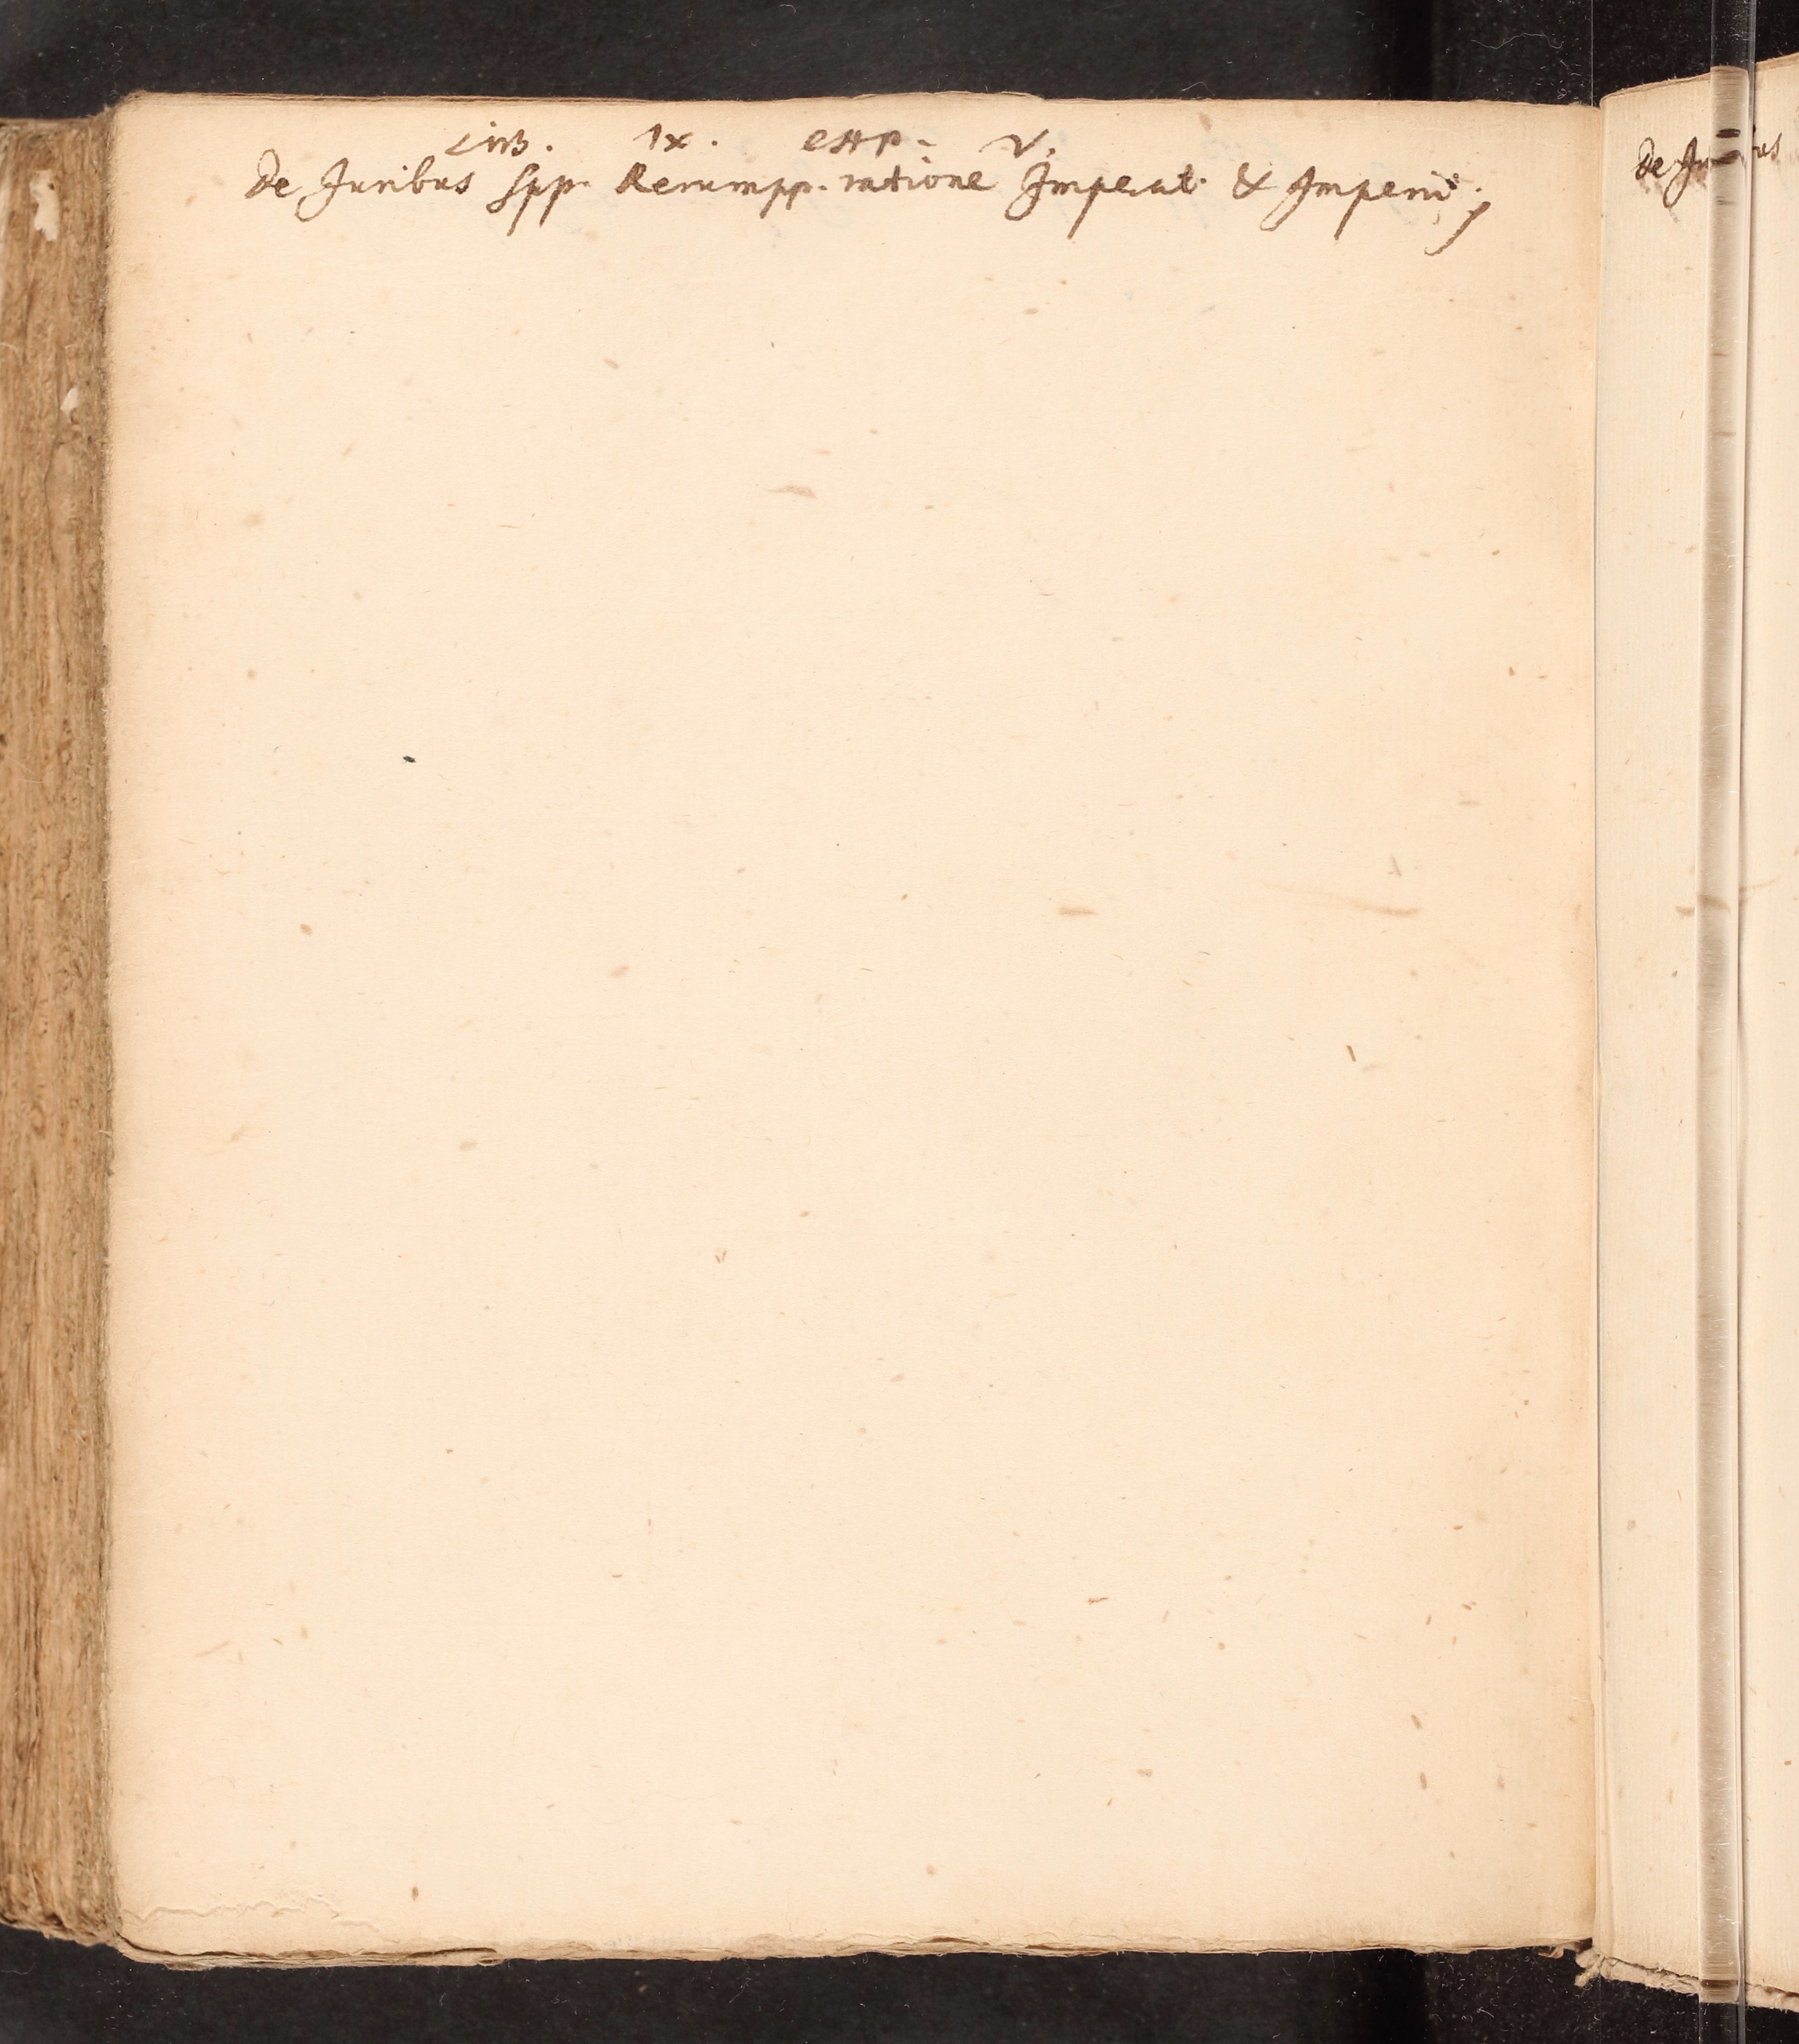 LIB. IX. CAP. V.
De Juribus Spp. Rerumpp. ratione Imperat. & Imperii.
de Ju